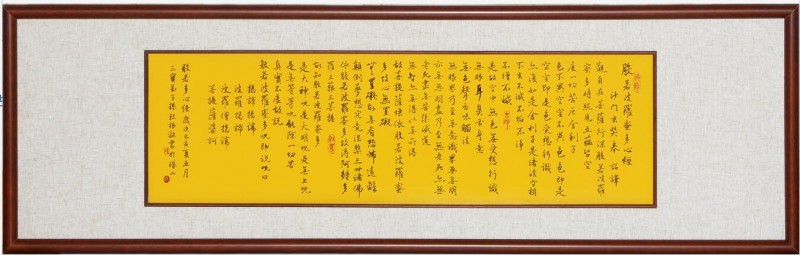 般若波羅蜜多心經
沙門玄奘奉詔譯
觀自在菩薩行深般若波羅
蜜多時照見五蘊皆空
度一切苦厄舍利子
色不異空空不異色色即是
空空即是色受想行識
亦復如是舍利子是諸法空相
不生不滅不垢不淨
不增不減
是故空中無色無受想行識
無眼耳鼻舌身意
無色聲香味觸法
無眼界乃至無意識界無無明
亦無無明盡乃至無老死亦無
老死盡無苦集滅道
無智亦無得以無所得
故菩提薩埵依般若波羅蜜
多故心無罣礙
無罣礙故無有恐怖遠離
顛倒夢想究竟涅槃三世諸佛
依般若波羅蜜多故得阿耨多
羅三藐三菩提
故知般若波羅蜜多
是大神咒是大明咒是無上咒
是無等等咒能除一切苦
真實不虛故說
般若波羅蜜多咒即說咒曰
揭諦揭諦
波羅揭諦
波羅僧揭諦
菩提薩婆訶
般若多心經歲次夏五月
三寶弟子孫敬書於山